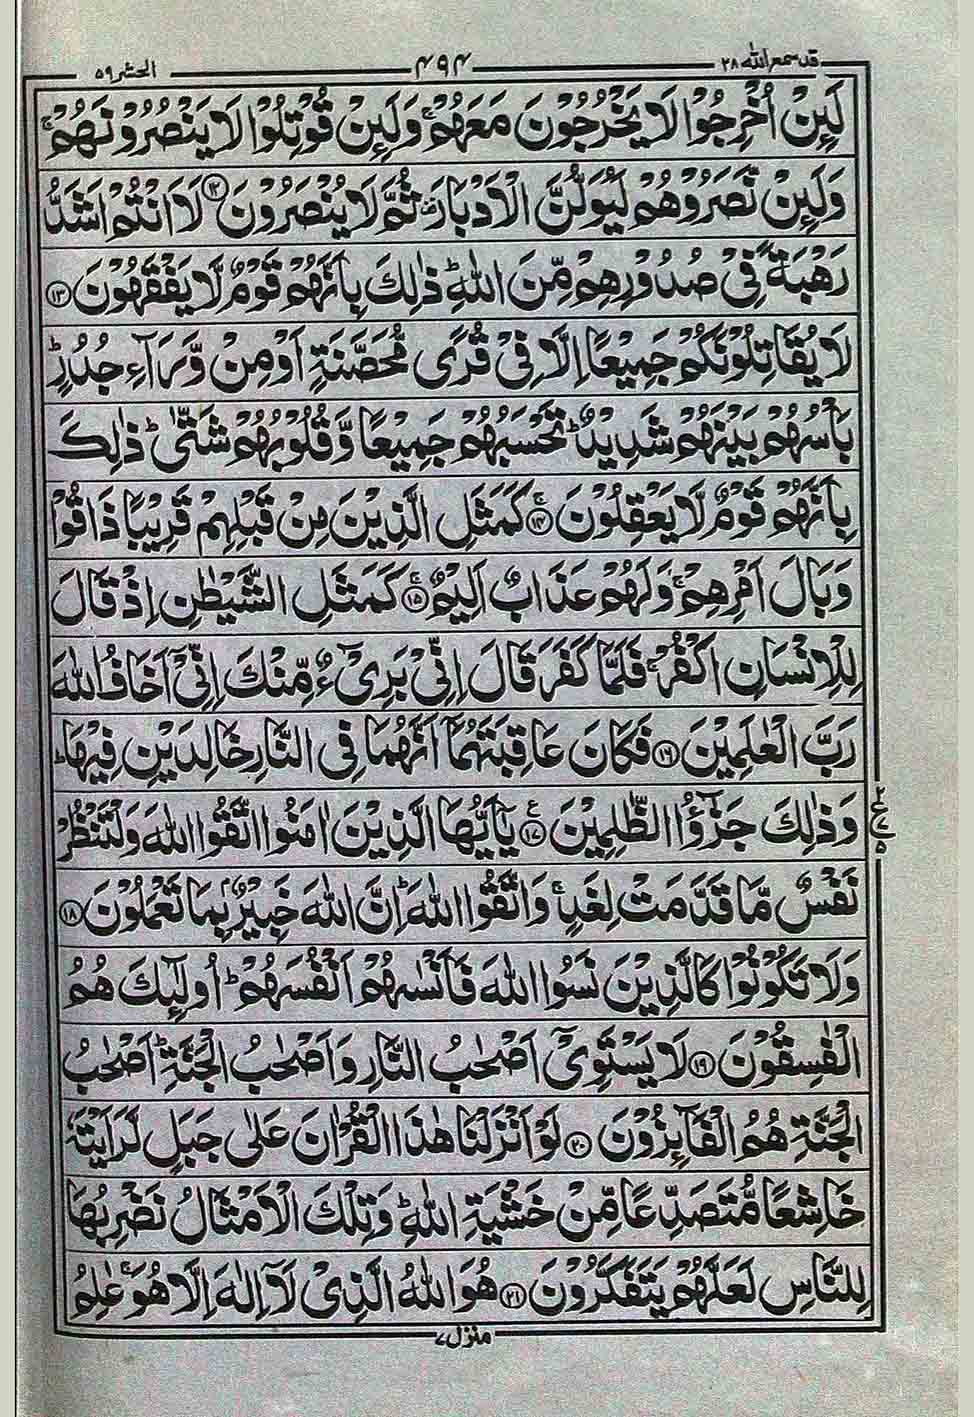 قد سمع الله ٢٨ ٤٩٤ الحشر ٥٩
لَئِنْ اُخْرِجُوْا لَا يَخْرُجُوْنَ مَعَهُمْ ۚ وَلَئِنْ قُوْتِلُوْا لَا يَنْصُرُوْنَهُمْ ۚ
وَلَئِنْ نَّصَرُوْهُمْ لَيُوَلُّنَّ الْاَدْبَارَ ۫ ثُمَّ لَا يُنْصَرُوْنَ ⑫ لَا اَنْتُمْ اَشَدُّ
رَهْبَةً فِيْ صُدُوْرِهِمْ مِّنَ اللّٰهِ ؕ ذٰلِكَ بِاَنَّهُمْ قَوْمٌ لَّا يَفْقَهُوْنَ ⑬
لَا يُقَاتِلُوْنَكُمْ جَمِيْعًا اِلَّا فِيْ قُرًى مُّحَصَّنَةٍ اَوْ مِنْ وَّرَآءِ جُدُرٍ ؕ
بَاْسُهُمْ بَيْنَهُمْ شَدِيْدٌ ؕ تَحْسَبُهُمْ جَمِيْعًا وَّقُلُوْبُهُمْ شَتّٰى ؕ ذٰلِكَ
بِاَنَّهُمْ قَوْمٌ لَّا يَعْقِلُوْنَ ⑭ۚ كَمَثَلِ الَّذِيْنَ مِنْ قَبْلِهِمْ قَرِيْبًا ذَاقُوْا
وَبَالَ اَمْرِهِمْ ۚ وَلَهُمْ عَذَابٌ اَلِيْمٌ ⑮ۚ كَمَثَلِ الشَّيْطٰنِ اِذْ قَالَ
لِلْاِنْسَانِ اكْفُرْ ۚ فَلَمَّا كَفَرَ قَالَ اِنِّيْ بَرِيْٓءٌ مِّنْكَ اِنِّيْٓ اَخَافُ اللّٰهَ
رَبَّ الْعٰلَمِيْنَ ⑯ فَكَانَ عَاقِبَتَهُمَآ اَنَّهُمَا فِي النَّارِ خَالِدَيْنِ فِيْهَا ؕ
وَذٰلِكَ جَزٰٓؤُا الظّٰلِمِيْنَ ⑰ۧ يٰٓاَيُّهَا الَّذِيْنَ اٰمَنُوا اتَّقُوا اللّٰهَ وَلْتَنْظُرْ
نَفْسٌ مَّا قَدَّمَتْ لِغَدٍ ۚ وَاتَّقُوا اللّٰهَ ؕ اِنَّ اللّٰهَ خَبِيْرٌۢ بِمَا تَعْمَلُوْنَ ⑱
وَلَا تَكُوْنُوْا كَالَّذِيْنَ نَسُوا اللّٰهَ فَاَنْسٰىهُمْ اَنْفُسَهُمْ ؕ اُولٰٓئِكَ هُمُ
الْفٰسِقُوْنَ ⑲ لَا يَسْتَوِيْٓ اَصْحٰبُ النَّارِ وَاَصْحٰبُ الْجَنَّةِ ؕ اَصْحٰبُ
الْجَنَّةِ هُمُ الْفَآئِزُوْنَ ⑳ لَوْ اَنْزَلْنَا هٰذَا الْقُرْاٰنَ عَلٰى جَبَلٍ لَّرَاَيْتَهٗ
خَاشِعًا مُّتَصَدِّعًا مِّنْ خَشْيَةِ اللّٰهِ ؕ وَتِلْكَ الْاَمْثَالُ نَضْرِبُهَا
لِلنَّاسِ لَعَلَّهُمْ يَتَفَكَّرُوْنَ ㉑ هُوَ اللّٰهُ الَّذِيْ لَآ اِلٰهَ اِلَّا هُوَ ۚ عٰلِمُ
منزل ٧